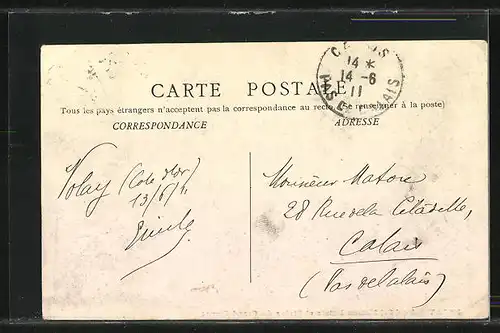 CARTE POSTALE
Tous les pays étrangers n'acceptent pas la correspondance au recto (Se renseigner à la poste)
CORRESPONDANCE
ADRESSE
14 *
14 -6
11
(Cote d'or)
13/6/11
Monsieur
28 Rue de la Citadelle,
Calais
(Pas de Calais)